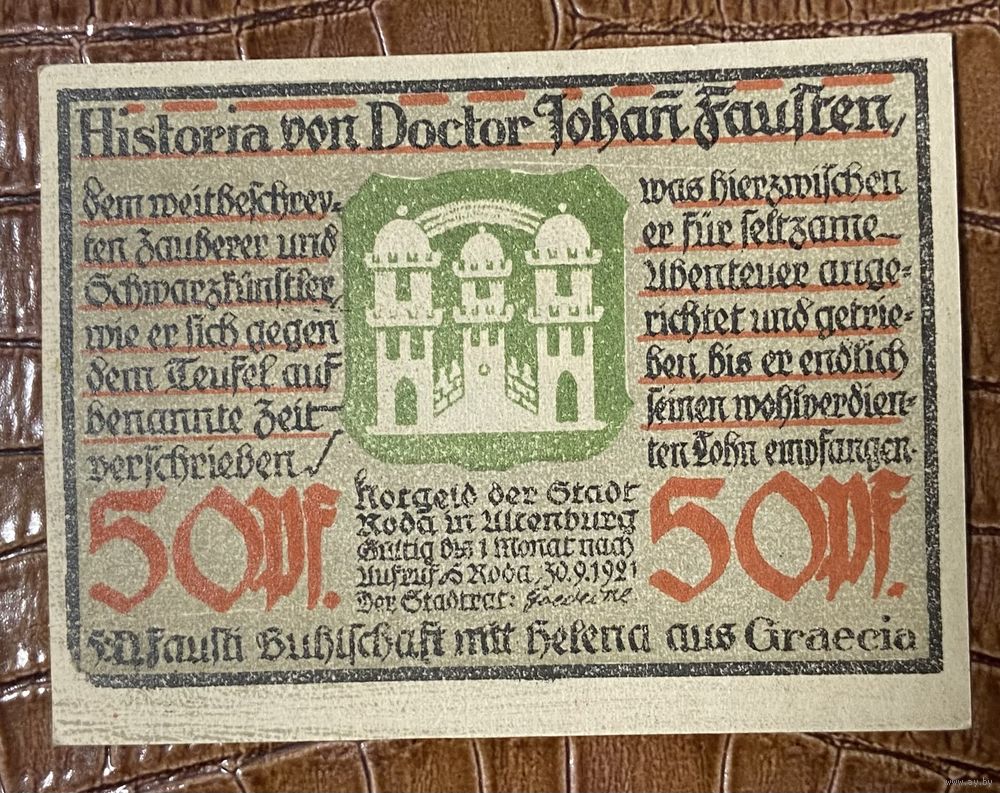 Historia von Doctor Johañ Fausten,
dem weitbeschrey-
ten Zauberer und
Schwarzkünstler,
wie er sich gegen
dem Teufel auf
benannte Zeit
verschrieben
was hierzwischen
er für seltzame
Abenteuer ange-
richtet und getrie-
ben, bis er endlich
seinen wohlverdien-
ten Lohn empfangen.
50 Pf.
Notgeld der Stadt
Roda in Altenburg
Gültig bis 1 Monat nach
Aufruf / S Roda, 30.9.1921
Der Stadtrat:
50 Pf.
Fausti Buhlschaft mit Helena aus Graecia
www.ay.by